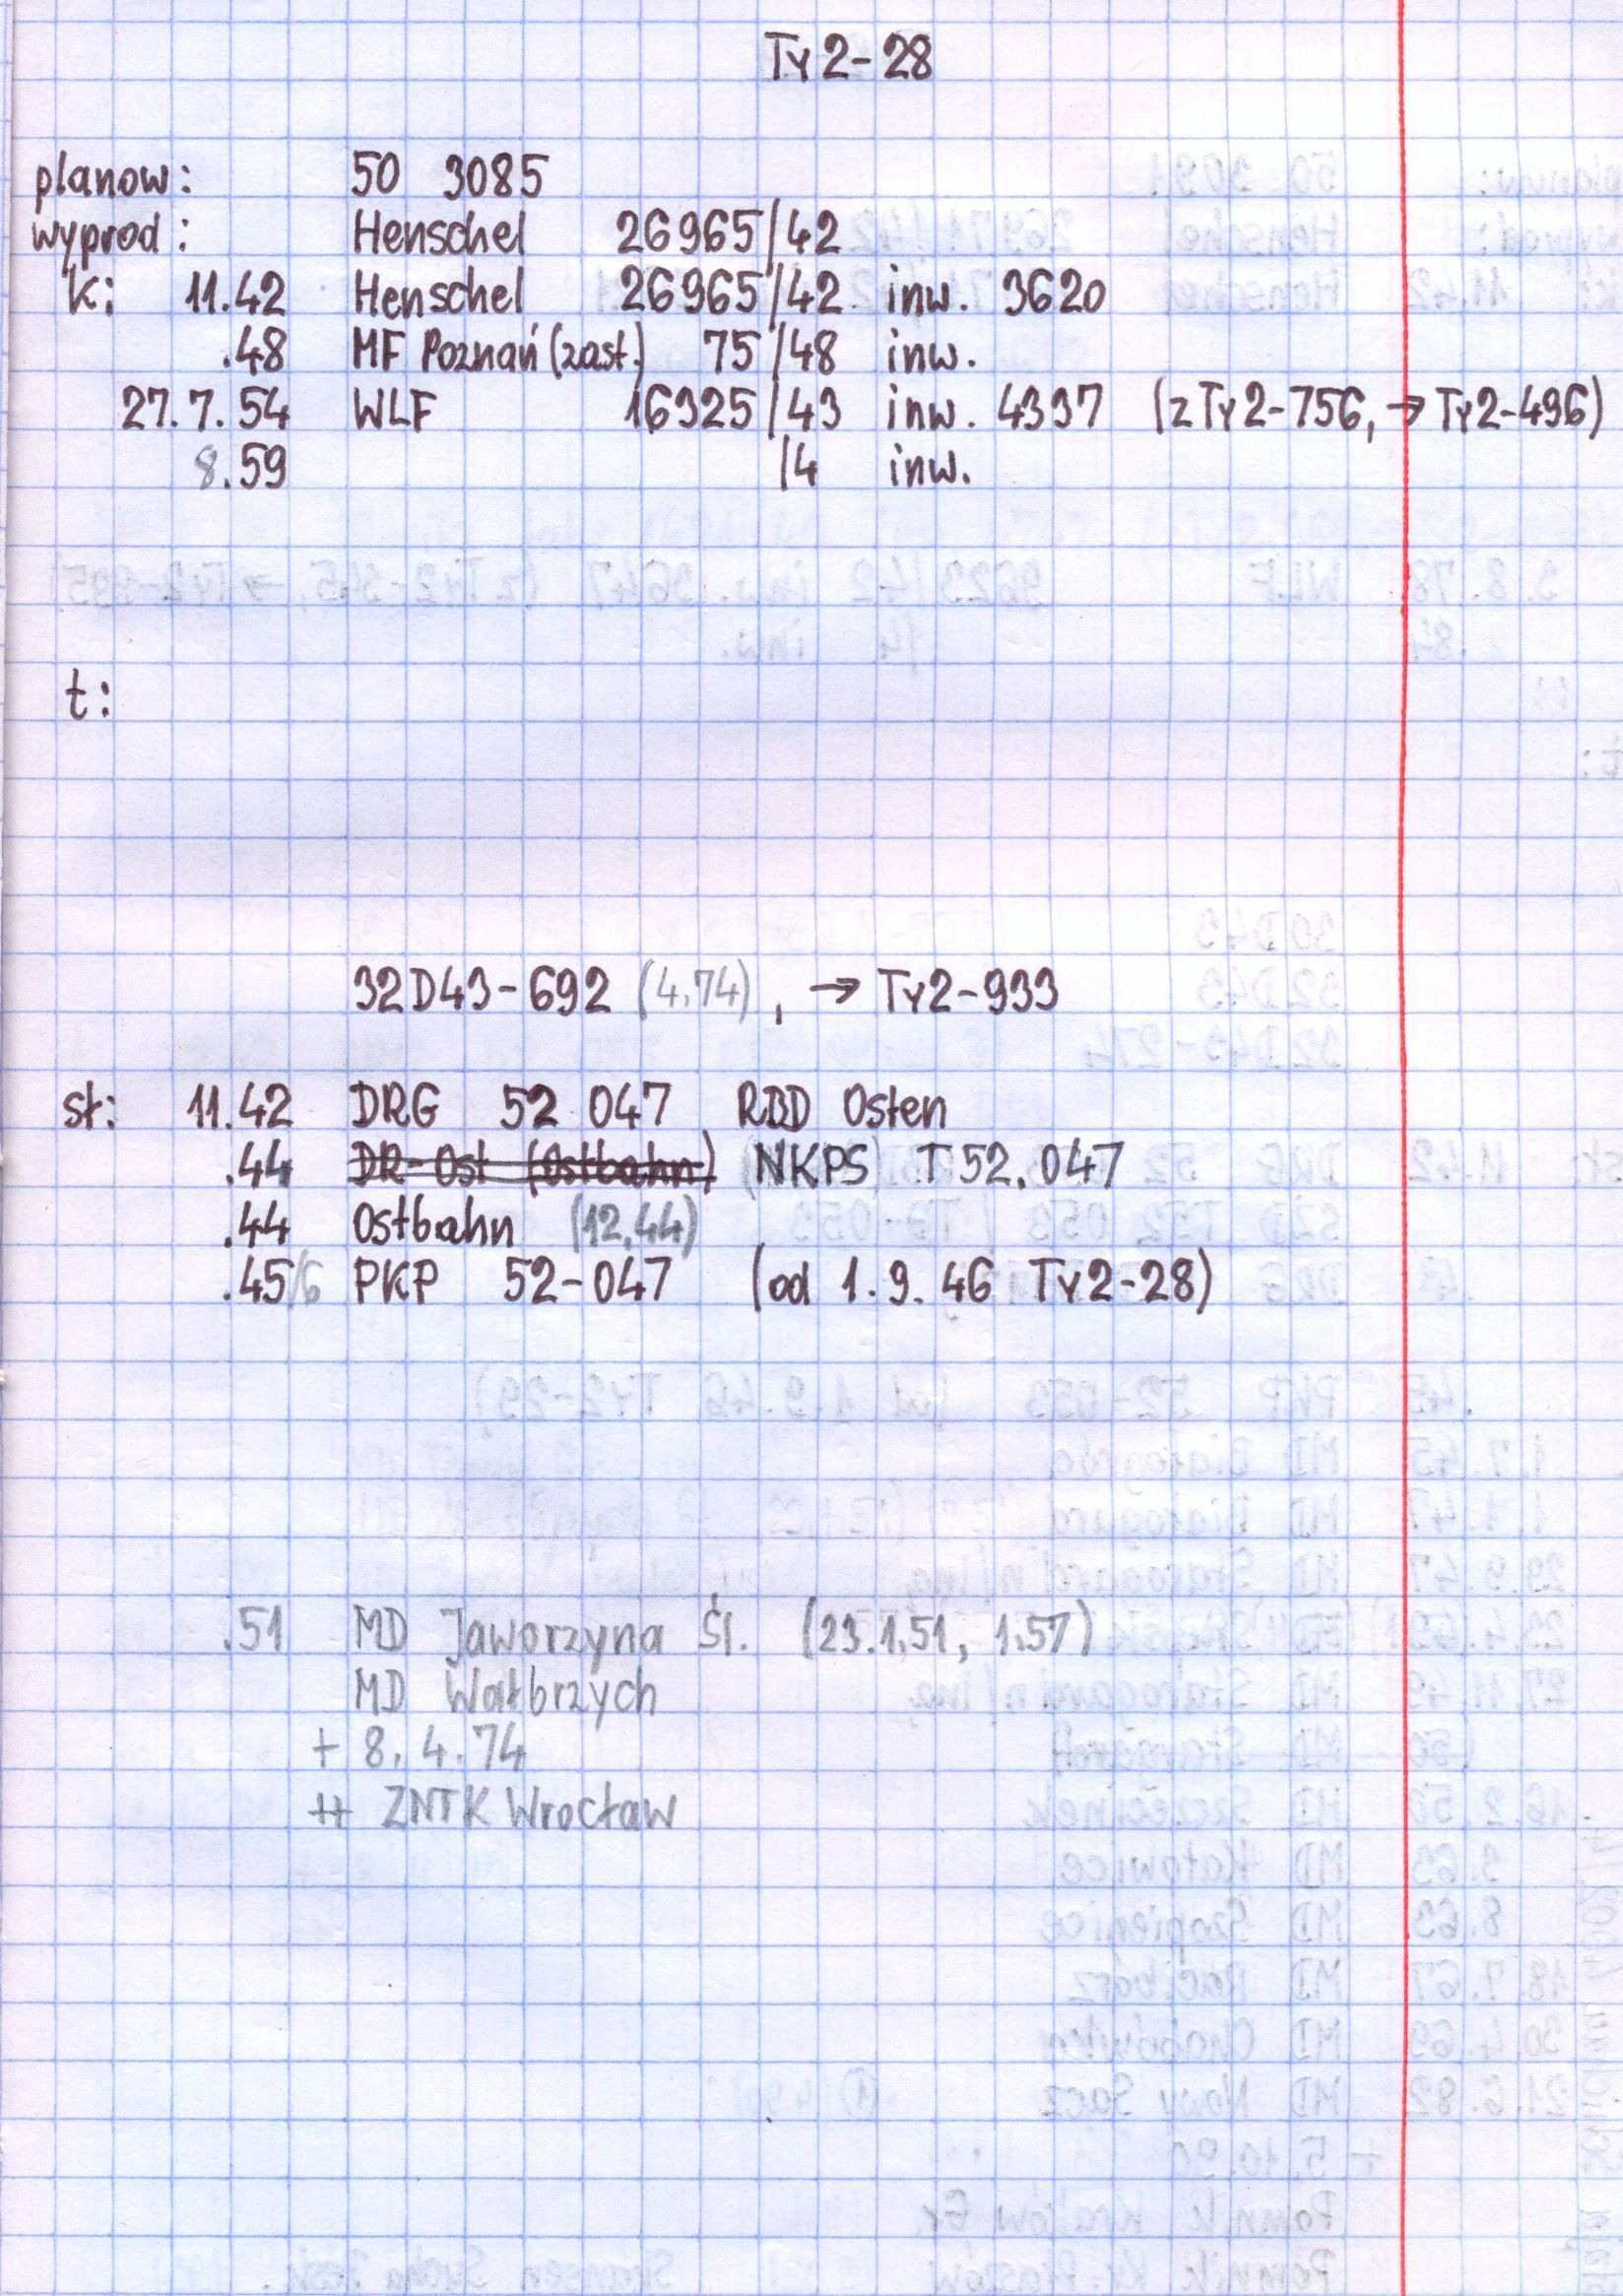 Ty2-28
planow: 50 3085
wyprod: Henschel 26965/42
k: 11.42 Henschel 26965/42 inw. 3620
.48 MF Poznań (zast.) 75/48 inw.
27.7.54 WLF 16325/43 inw. 4337 (z Ty2-756, → Ty2-496)
8.59 /4 inw.
t:
32D43-692 (4.74), → Ty2-933
st: 11.42 DRG 52 047 RBD Osten
.44 DR-Ost (Ostbahn) NKPS T52.047
.44 Ostbahn (12.44)
.45/6 PKP 52-047 (od 1.9.46 Ty2-28)
.51 MD Jaworzyna Śl. (23.1.51, 1.57)
MD Wałbrzych
+ 8.4.74
++ ZNTK Wrocław